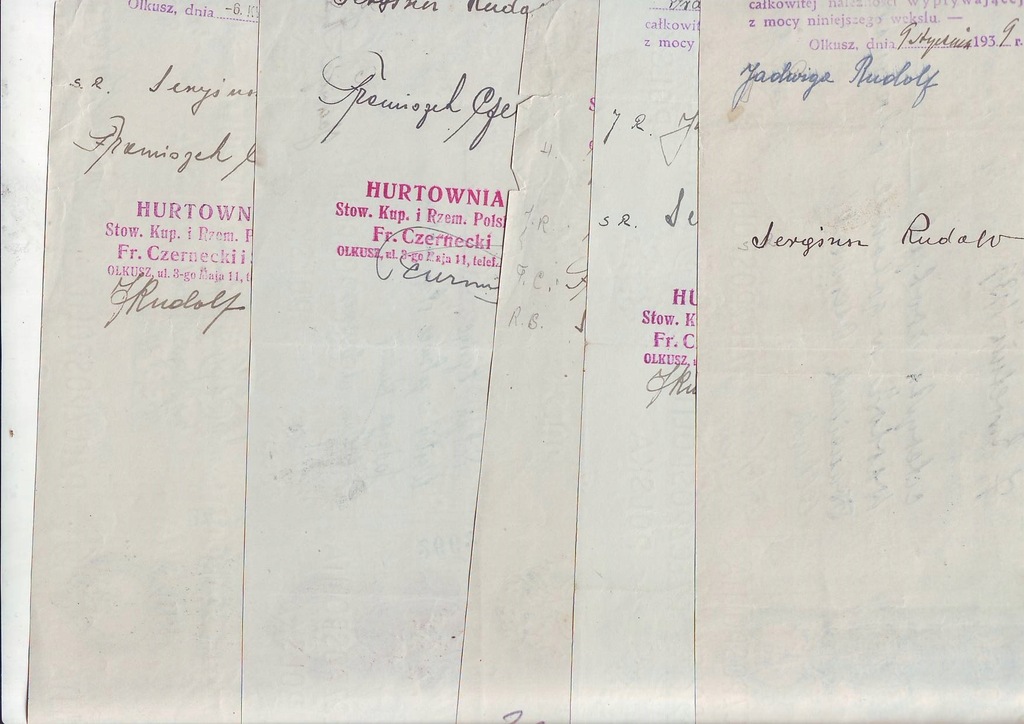 Olkusz, dnia -6.
s. R. Sergiusz
Franciszek
HURTOWN
Stow. Kup. i Rzem. P
Fr. Czernecki i
OLKUSZ, ul. 3-go Maja 11, t
JRudolf
Sergiusz Rudo
Franciszek Cze
HURTOWNIA
Stow. Kup. i Rzem. Pols
Fr. Czernecki
OLKUSZ, ul. 3-go Maja 11, telef.
H.
J.R
F. C.
R. B.
całkowit
z mocy
J R.
s R. Se
HU
Stow. K
Fr. C
OLKUSZ,
JRu
całkowitej należności wypływającej
z mocy niniejszego wekslu. —
Olkusz, dnia 9 stycznia 1939 r.
Jadwiga Rudolf
Sergiusz Rudolf